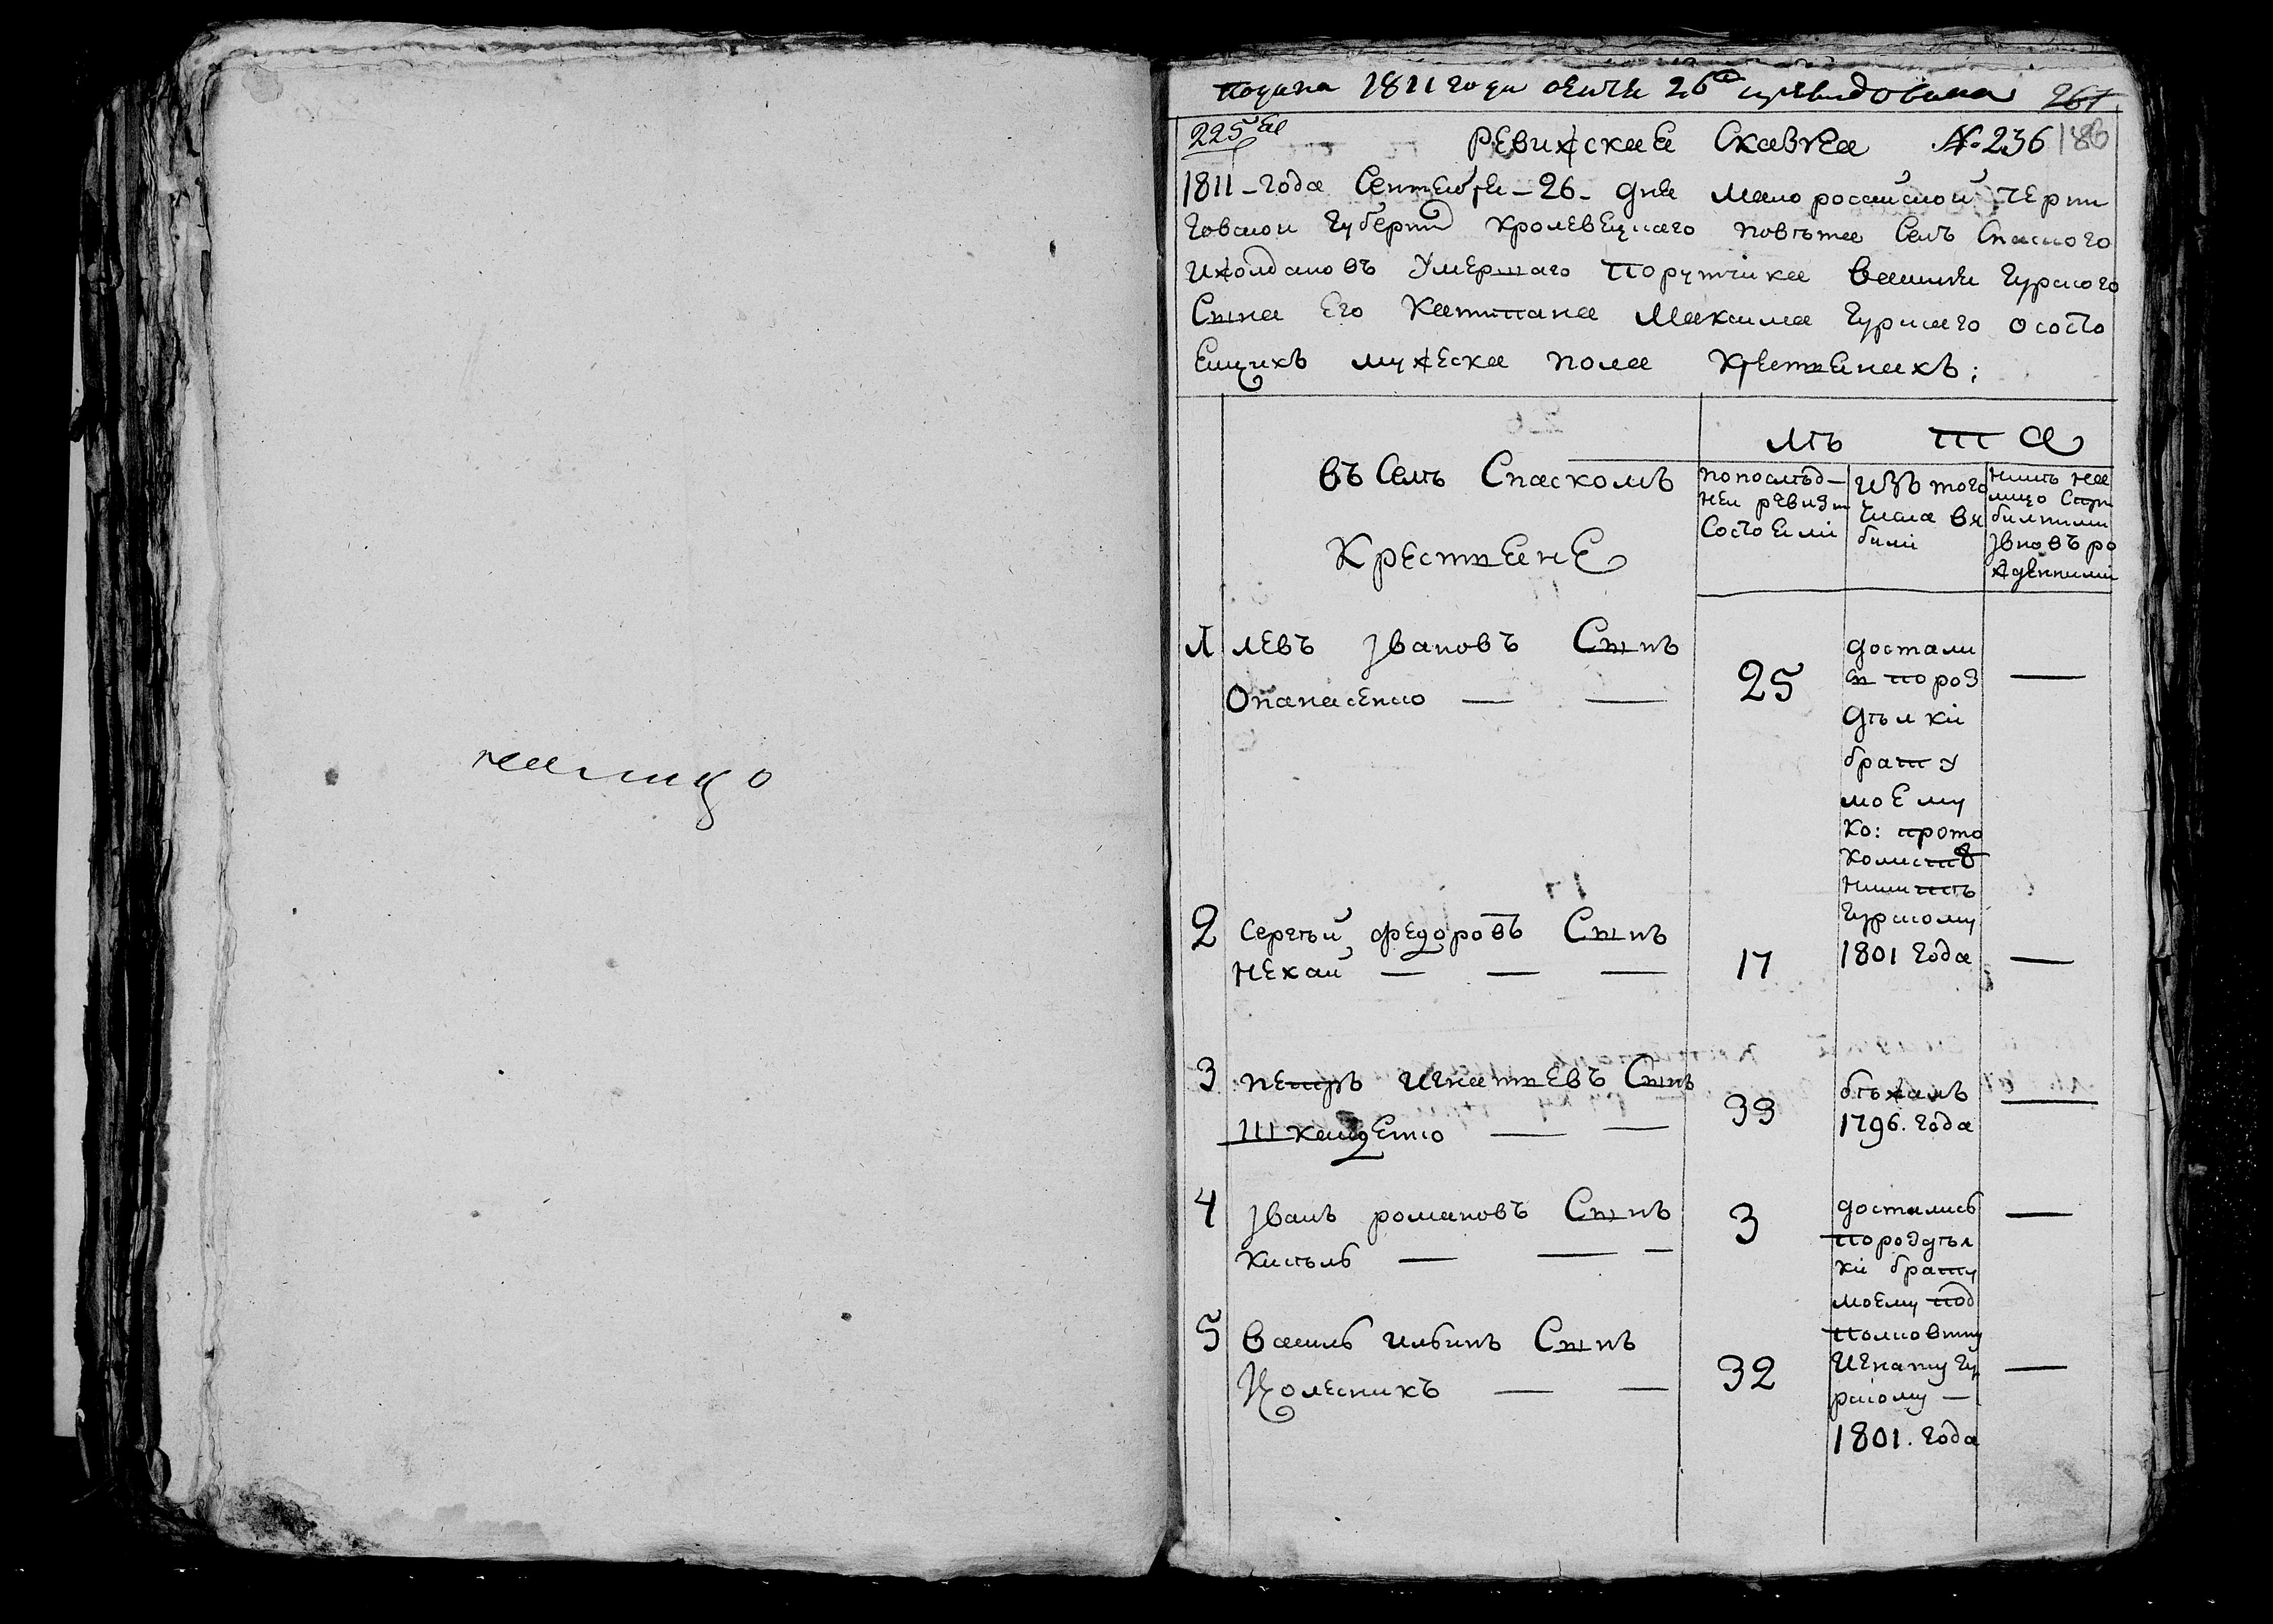 налицо
подана 1811 года 26
261
225
Ревижская Сказка №. 236
186
1811-года Сентебря-26-дня Малороссийской Черни
Говской Губернии Кролевецкаго Повѣта Селъ Спаского
Ижолдаковъ Умершаго Порутчика Василя Гурского
Сына Его Капитана Максима Гурскаго ососто
Ящихъ мужеска пола Крестьянахъ;
въ Селѣ Спаскомъ
Крестьяне
лѣта
попослѣд-
ней ревизи
Состояли
изъ того
Числа вы
были
ныне на
лицо Спри
былыми
Iвновъ ро
жденными
1 левъ Iвановъ Сынъ
Опанасенко — —
25
достали
ся пороз
дѣлки
брату
моему
ко: прото
колисту
Никитѣ
Гурскому
1801 года
—
2 Сергѣй федоровъ Сынъ
Нехай — — —
17
—
3 петръ Игнатьевъ Сынъ
Шканденко — —
33
бѣжалъ
1796. года
—
4 Iванъ романовъ Сынъ
Кисѣль — — —
3
достались
пороздѣл
ки брату
моему под
полковнику
Игнату Гу
рскому —
1801. года
—
5 Василь ильинъ Сынъ
Колесникъ — —
32
—